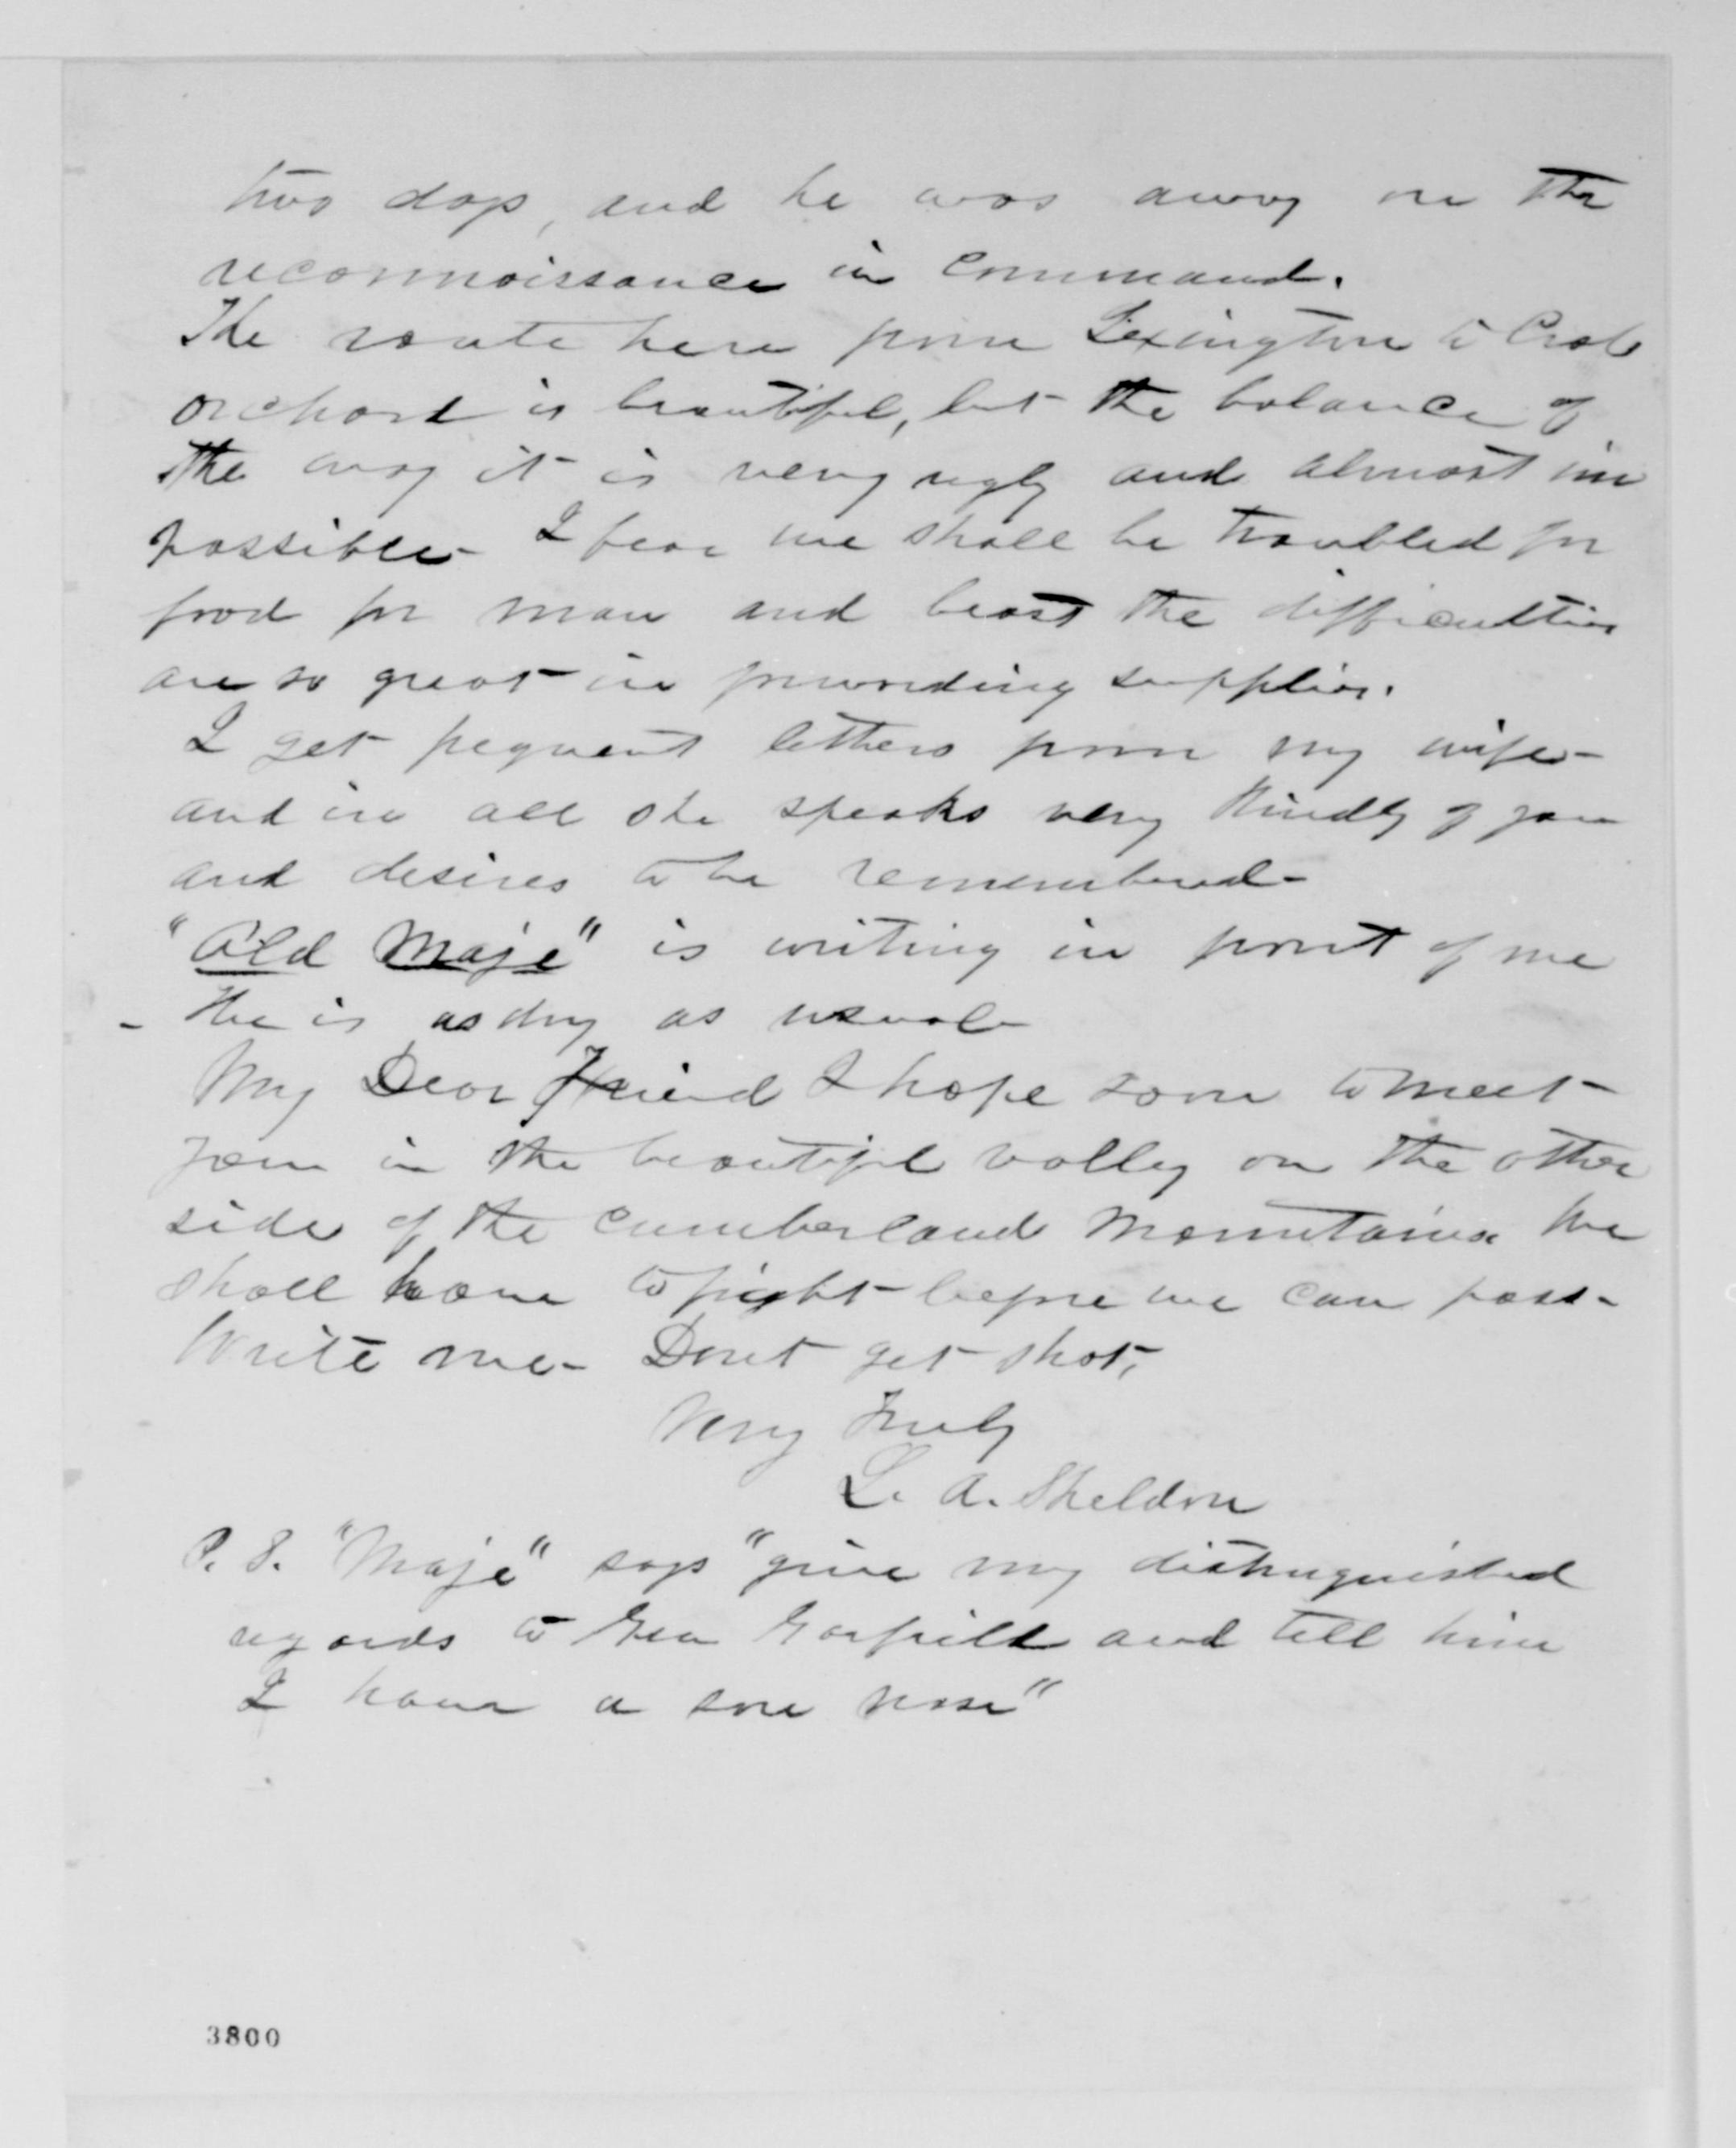 two days, and he was away on the
reconnoissance in command.
The route here from Lexington to Crab
orchard is beautiful, but the balance of
the way it is very ugly and almost im
possible - I fear we shall be troubled for
food for man and beast the difficulties
are so great in forwarding supplies.
I get frequent letters from my wife -
and in all she speaks very kindly of you
and desires to be remembered -
"Old Maje" is writing in front of me
- He is as dry as usual
My Dear Friend I hope soon to meet
you in the beautiful valley on the other
side of the Cumberland Mountains. We
shall have to fight before we can pass -
Write me - Dont get shot,
Very Truly
L. A. Sheldon
P. S. "Maje" says "give my distinguished
regards to Gen Garfield and tell him
I have a sore nose"
3800